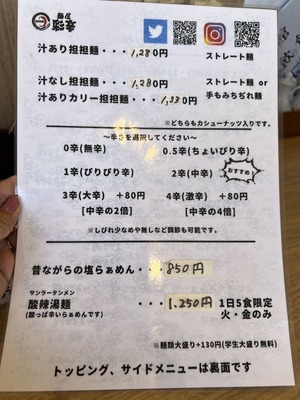 汁あり担担麺・・・1,280円 ストレート麺
汁なし担担麺・・・1,280円 ストレート麺 or
汁ありカリー担担麺・・・1,330円 手もみちぢれ麺
※どちらもカシューナッツ入りです。
〜辛さを選択してください〜
0辛(無辛) 0.5辛(ちょいぴり辛)
1辛(ぴりぴり辛) 2辛(中辛) おすすめ!
3辛(大辛) +80円 4辛(激辛) +80円
[中辛の2倍] [中辛の4倍]
※しびれ少なめや無しなど調節も可能です。
昔ながらの塩らぁめん・・・850円
サンラータンメン
酸辣湯麺 ・・・1,250円 1日5食限定
(酸っぱ辛いらぁめんです) 火・金のみ
※麺類大盛り+130円(学生大盛り無料)
トッピング、サイドメニューは裏面です